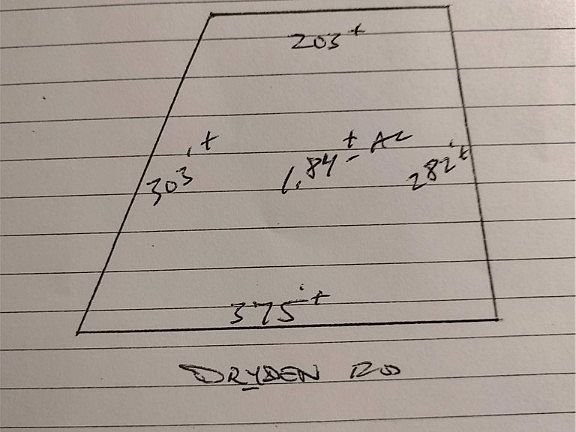 203'+
303'+ 1.84± AC 282'+
375'+
DRYDEN RD